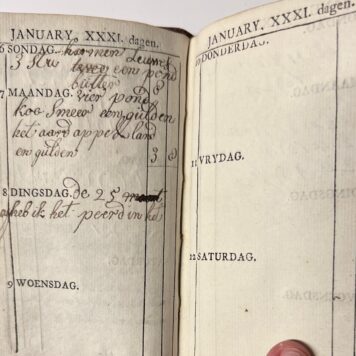 JANUARY, XXXI. dagen.
6 SONDAG. harmen
3 een pont
butter 8
7 MAANDAG. vier pond
koe Smeer een gulden
het aard appel land
en gulden 3 0
8 DINGSDAG. de 25 maart
heb ik het peerd in het
9 WOENSDAG.
JANUARY, XXXI. dagen.
10 DONDERDAG.
11 VRYDAG.
12 SATURDAG.